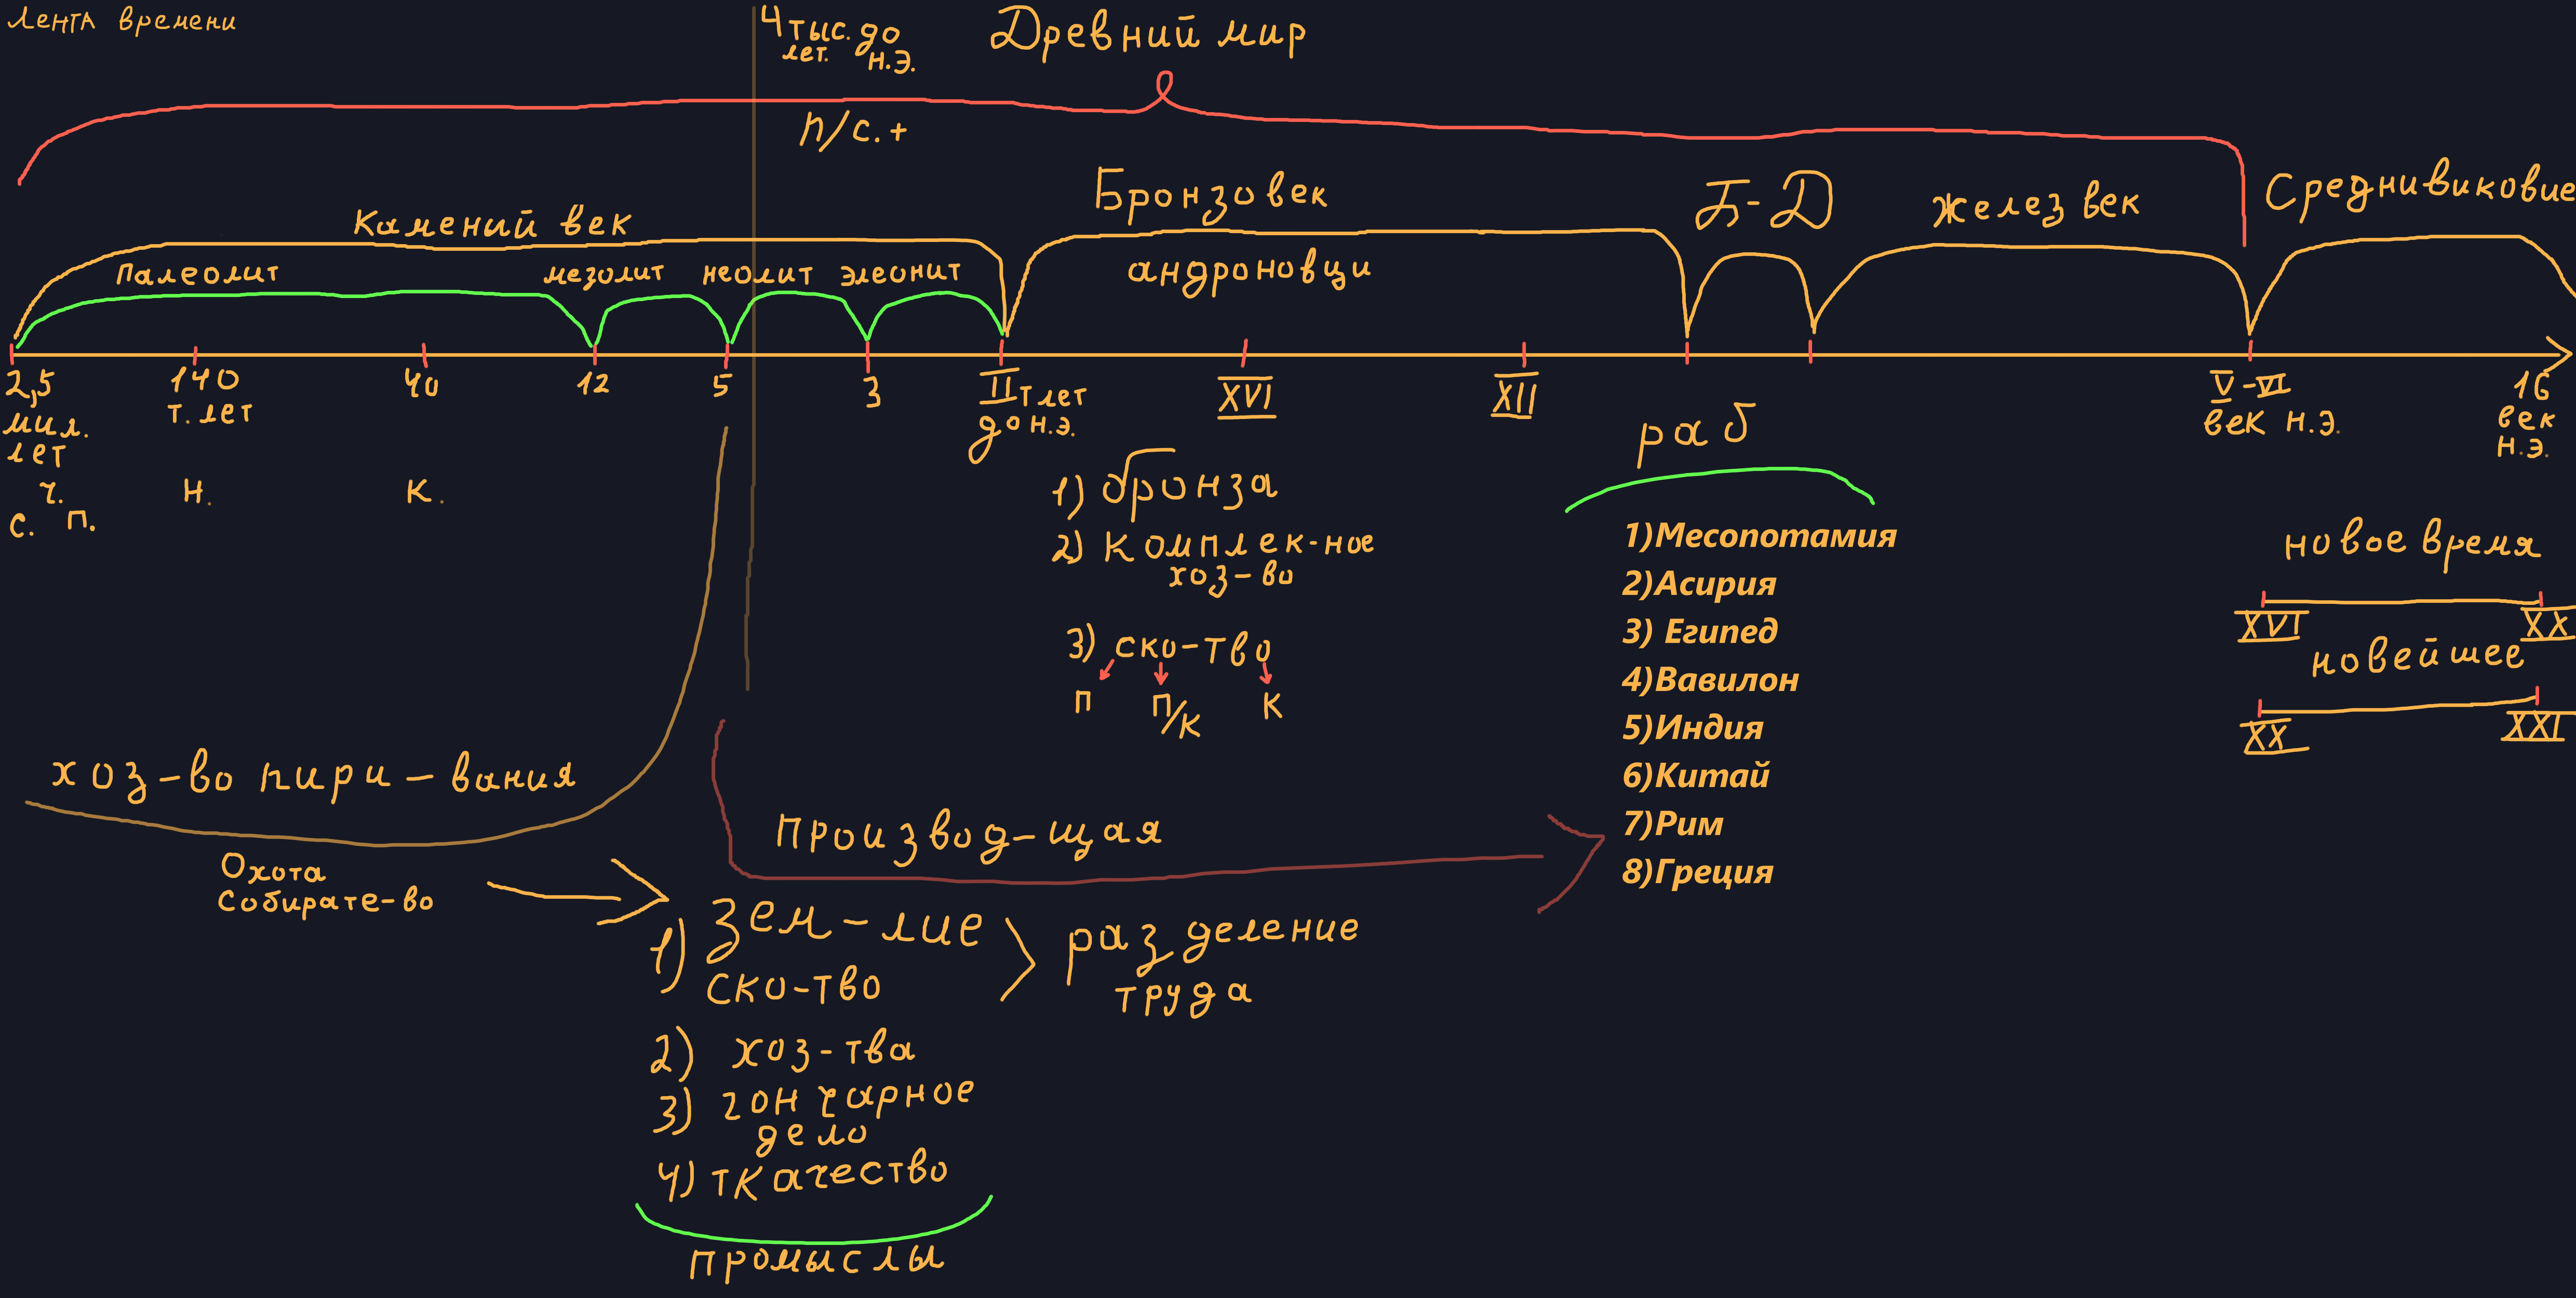 Лента времени
4 тыс. до
лет. н.э.
Древний мир
п/с. +
Каменый век
Бронзовек
Б-Д
желез век
Среднивиковие
палеолит
мезолит
неолит
элеонит
андроновци
2,5
мил.
лет
140
т. лет
40
12
5
3
II т лет
до н.э.
XVI
XII
V-VI
век н.э.
16
век
н.э.
ч.
с. п.
Н.
К.
1) бронза
2) комплек-ное
хоз-во
3) ско-тво
п п/к к
раб
1)Месопотамия
2)Асирия
3) Египед
4)Вавилон
5)Индия
6)Китай
7)Рим
8)Греция
новое время
XVI XX
новейшее
XX XXI
хоз-во пири-вания
Охота
Собирате-во
Производ-щая
1) зем-лие
ско-тво
разделение
труда
2) хоз-тва
3) гончарное
дело
4) ткачество
промыслы